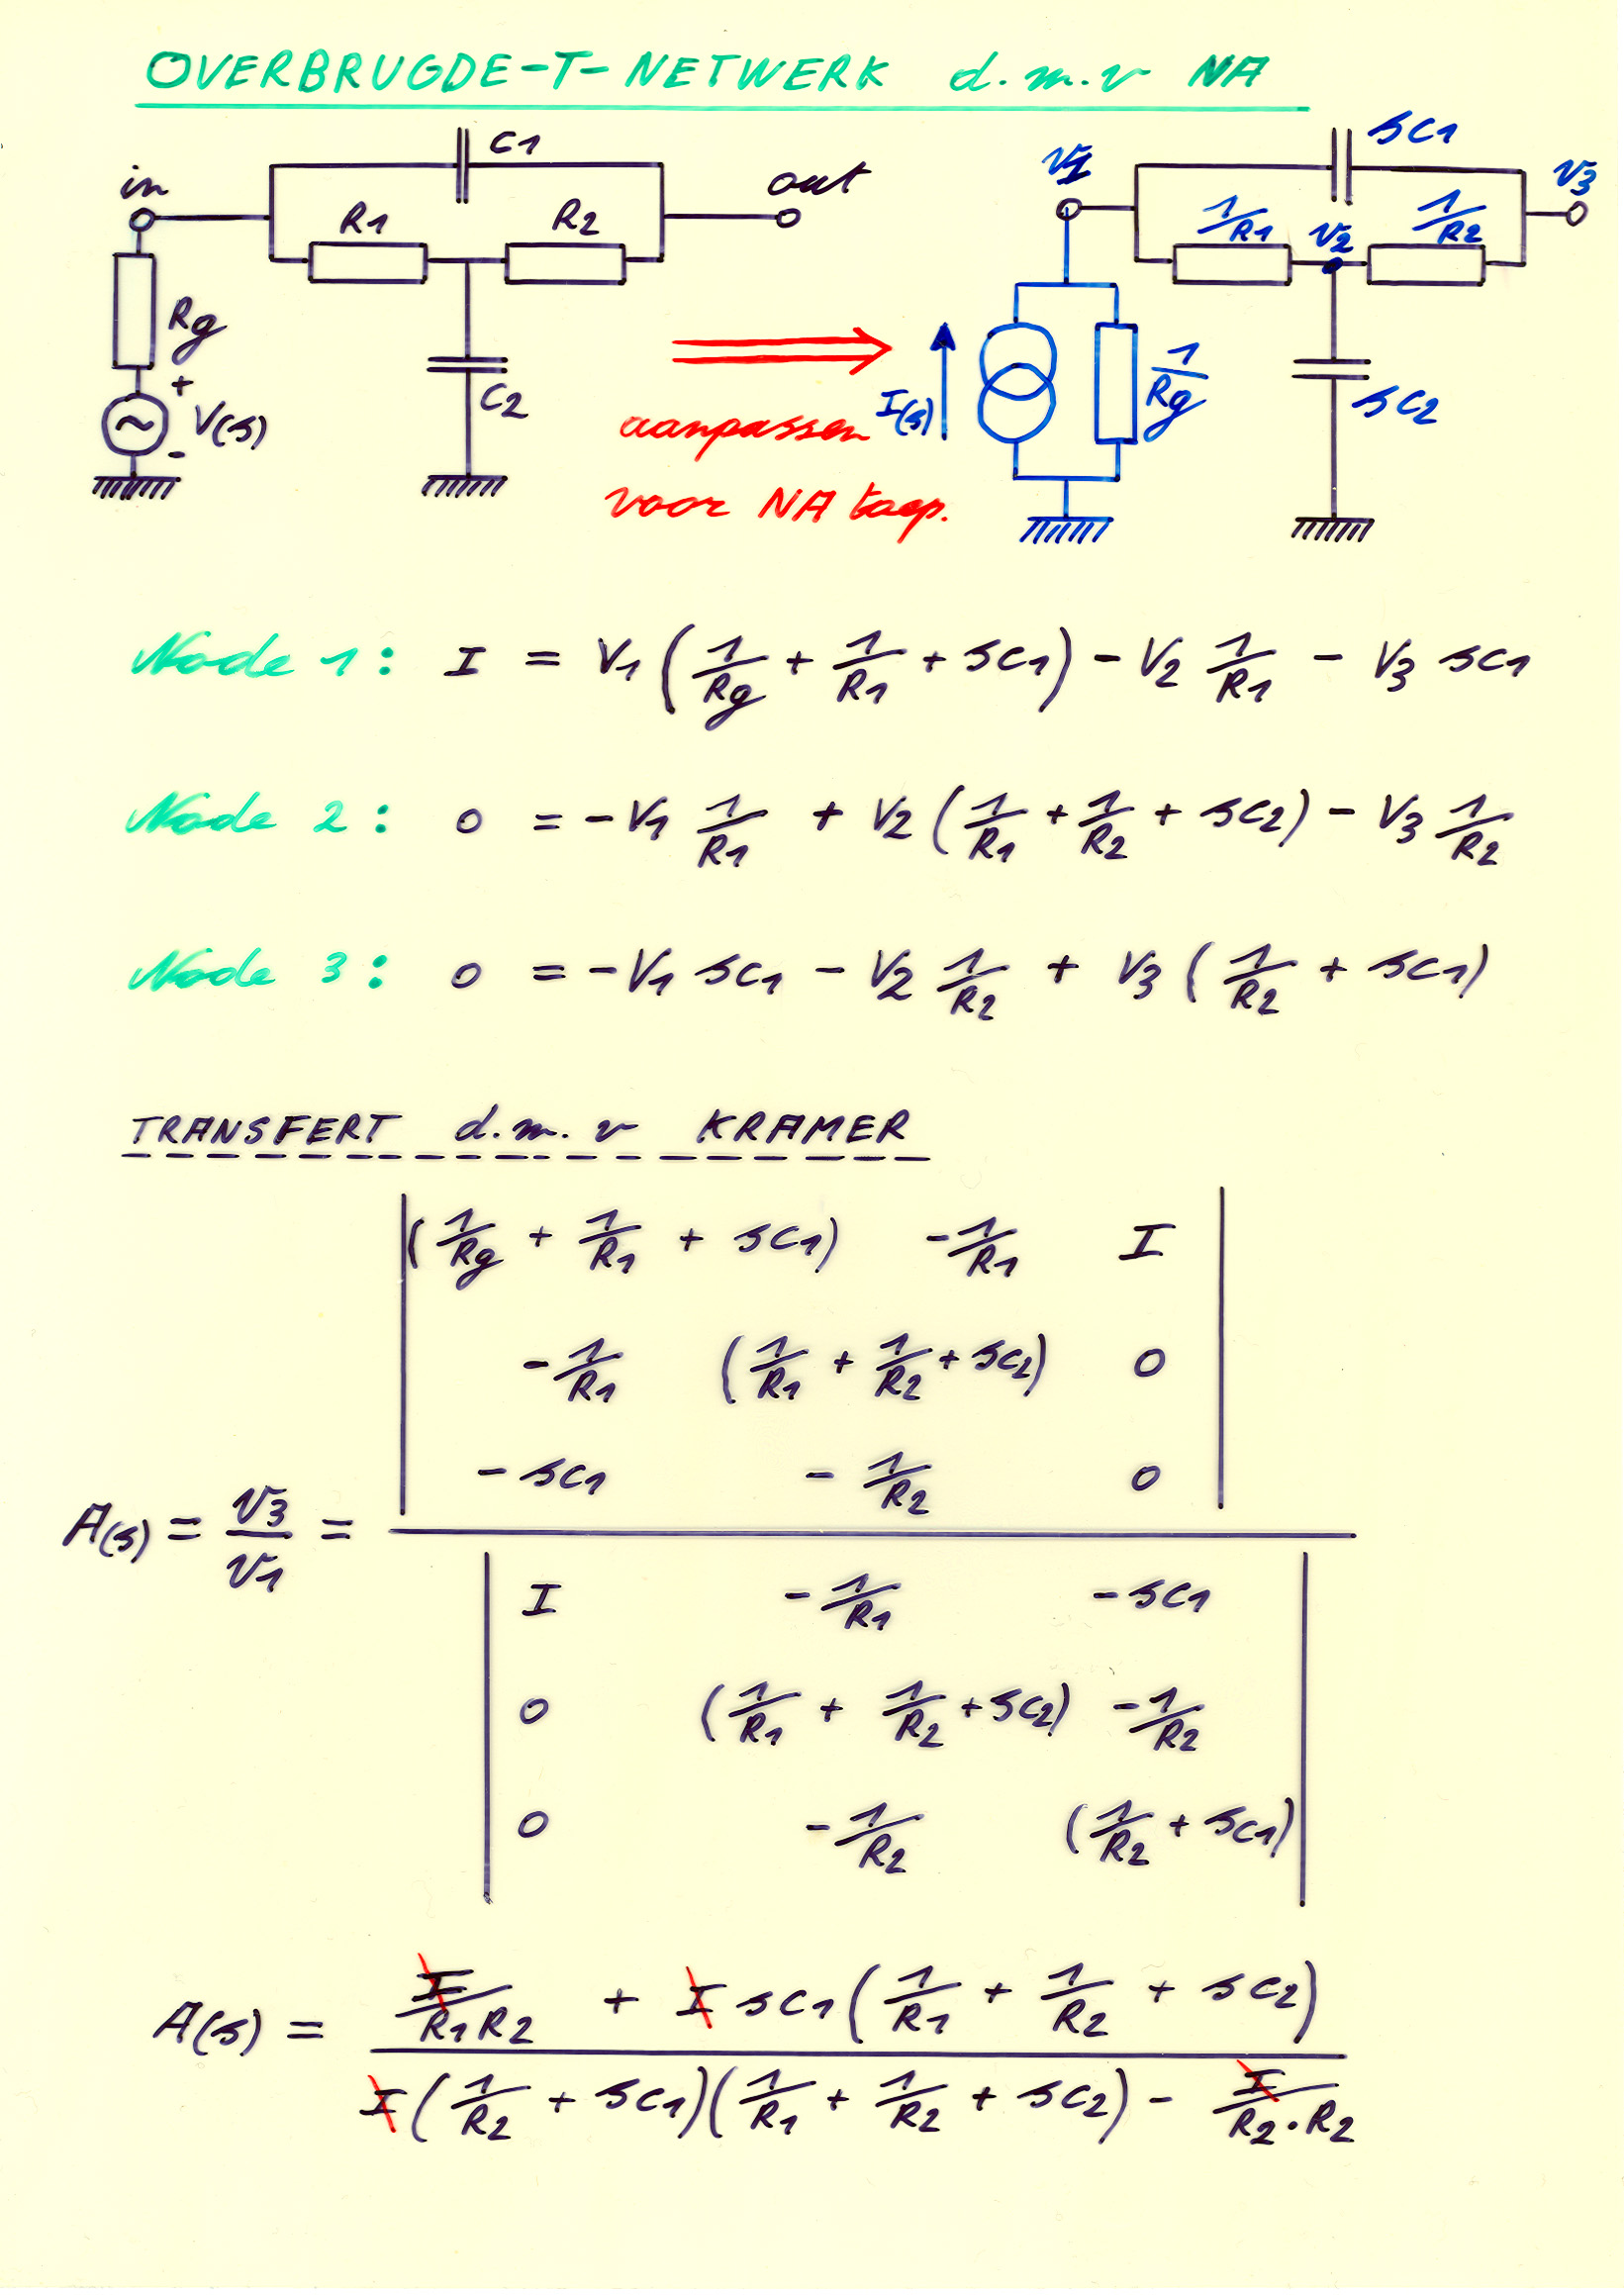 OVERBRUGDE-T-NETWERK d.m.v NA
C1
in
R1
R2
out
Rg
+
V(s)
-
C2
aanpassen
voor NA toep.
V1
sC1
V3
1/R1
V2
1/R2
I(s)
1/Rg
sC2
Node 1: I = V1 (1/Rg + 1/R1 + sC1) - V2 1/R1 - V3 sC1
Node 2: 0 = -V1 1/R1 + V2 (1/R1 + 1/R2 + sC2) - V3 1/R2
Node 3: 0 = -V1 sC1 - V2 1/R2 + V3 (1/R2 + sC1)
TRANSFERT d.m.v KRAMER
(1/Rg + 1/R1 + sC1) -1/R1 I
-1/R1 (1/R1 + 1/R2 + sC2) 0
-sC1 -1/R2 0
A(s) = V3/V1 =
I -1/R1 -sC1
0 (1/R1 + 1/R2 + sC2) -1/R2
0 -1/R2 (1/R2 + sC1)
I/R1R2 + I sC1 (1/R1 + 1/R2 + sC2)
A(s) =
I (1/R2 + sC1)(1/R1 + 1/R2 + sC2) - I/R2.R2